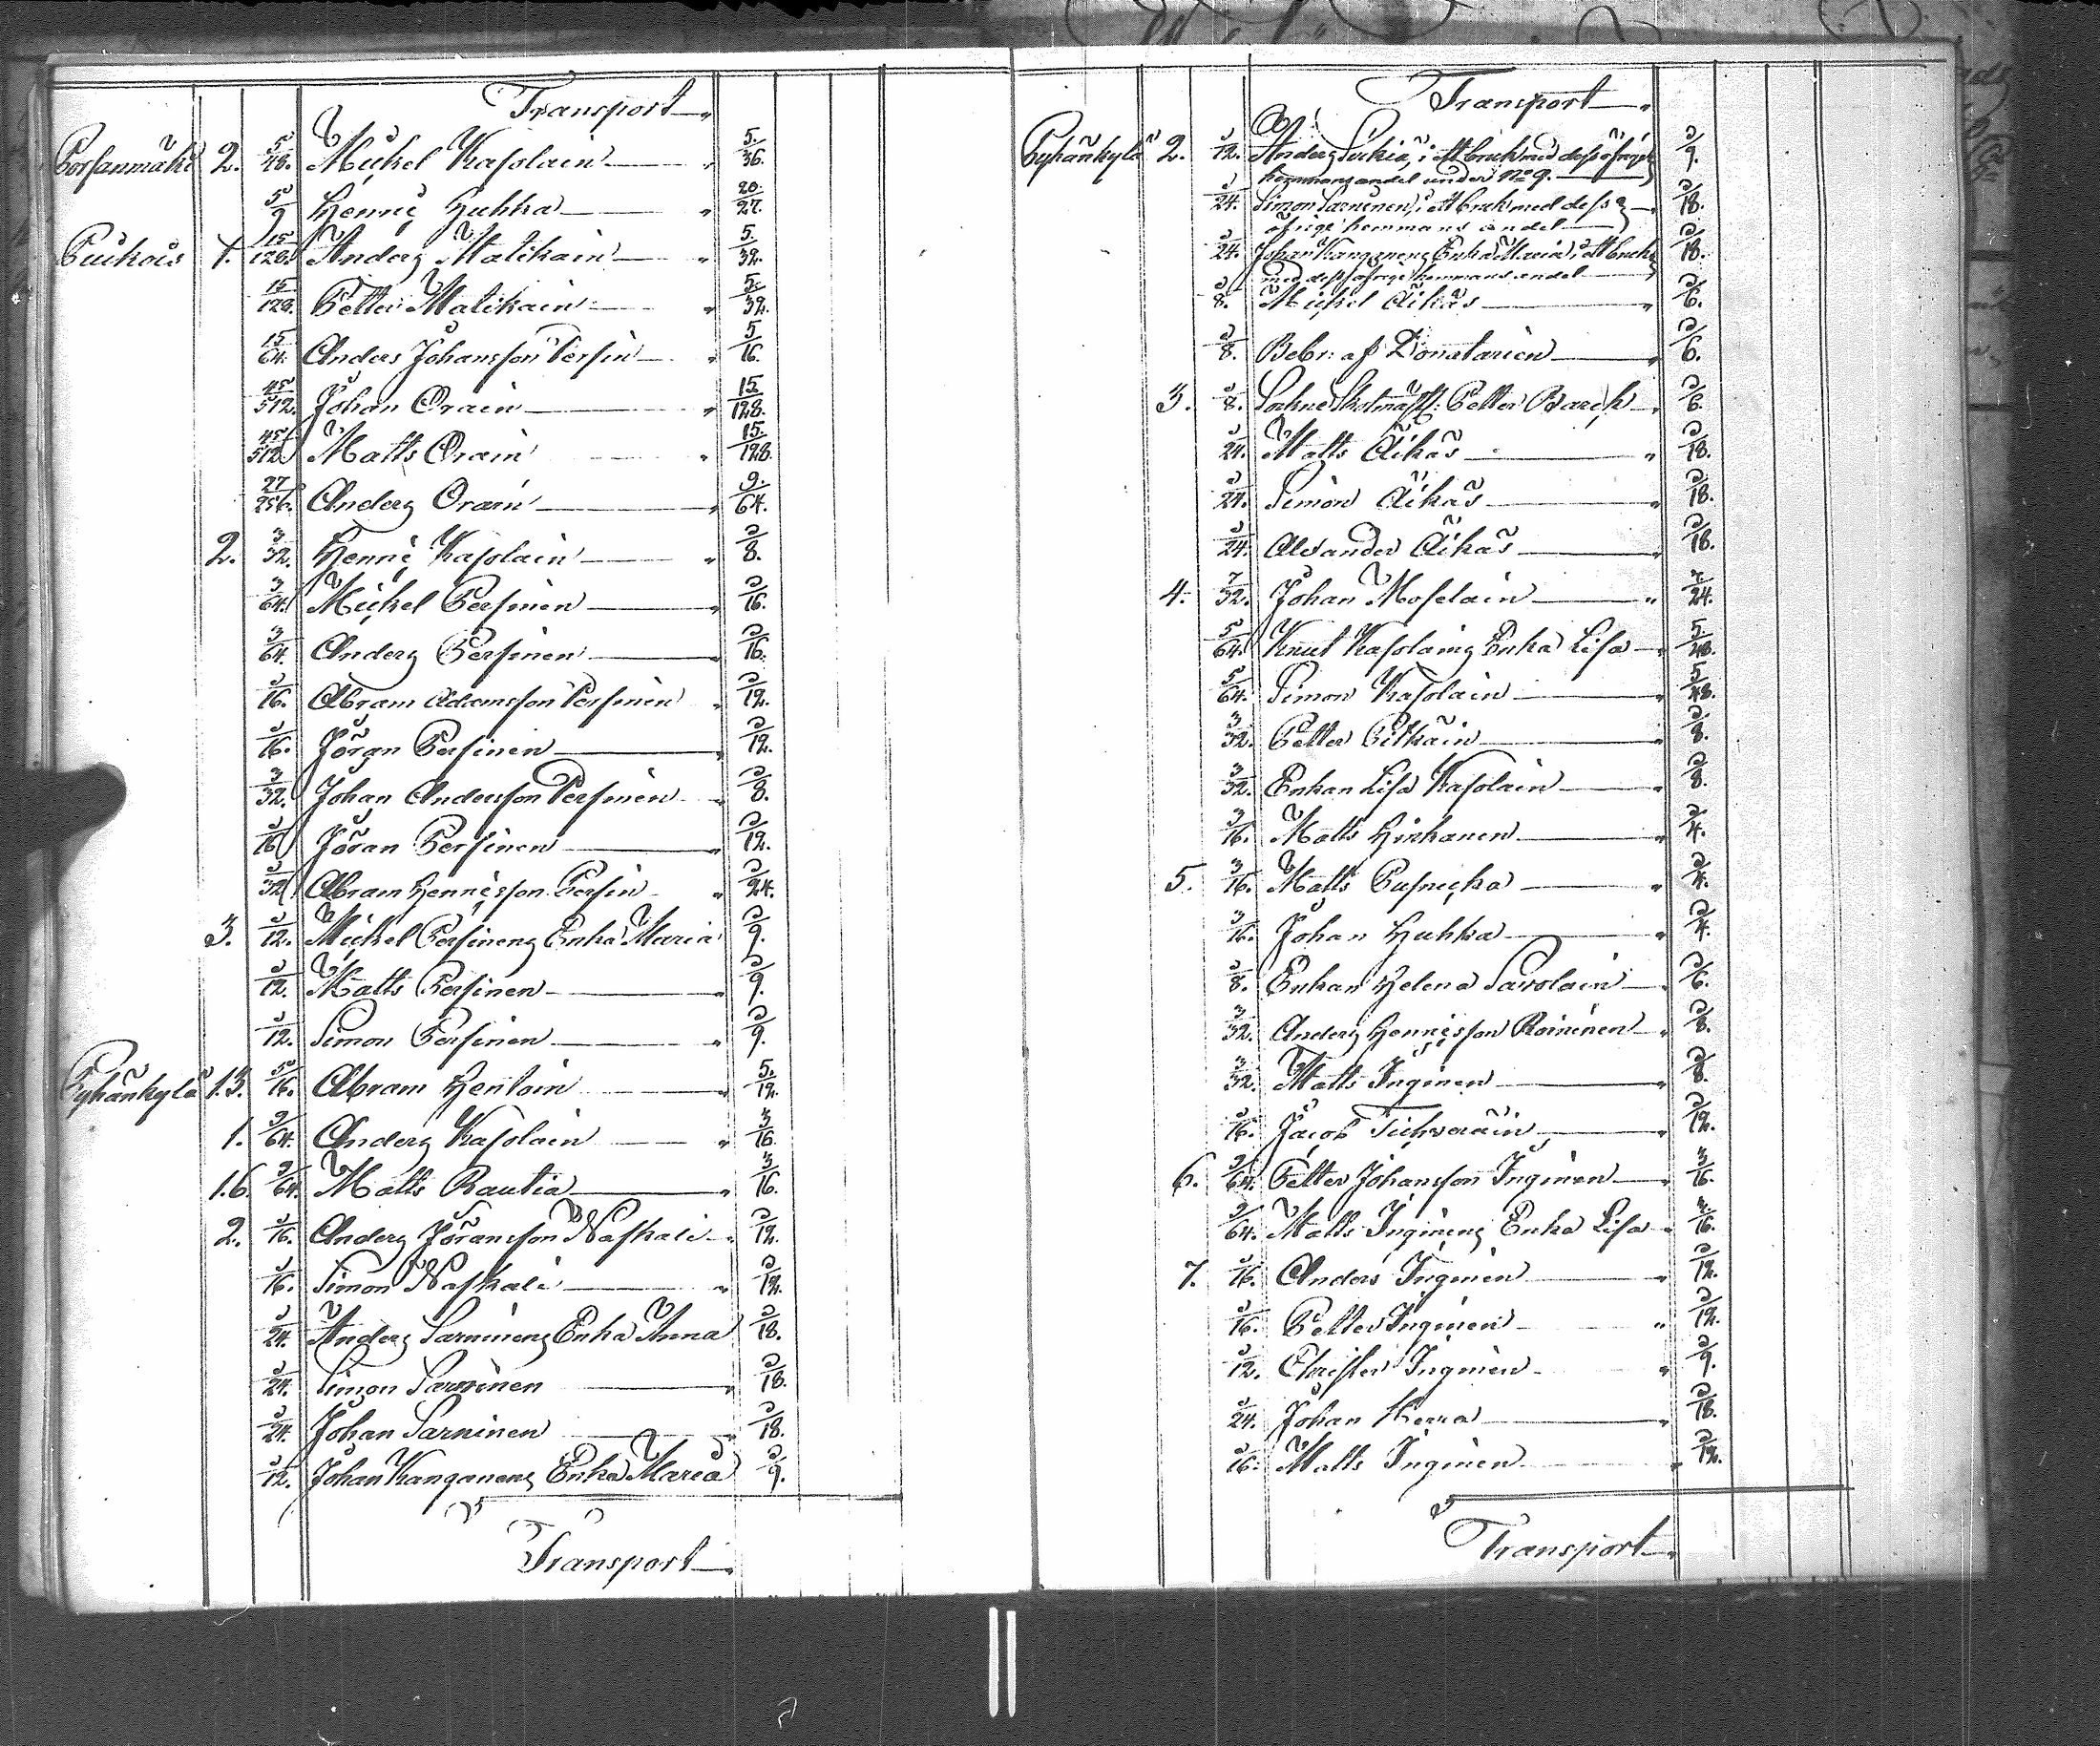 Transport
Porsanmäki 2. 5/48. Mickel Kasolain " 5/36.
5/9 Henric Huhka " 20/27.
Puikois 1. 15/128. Anders Matikain " 5/32.
15/128. Petter Matikain " 5/32.
15/64. Anders Johansson Persin " 5/16.
45/512. Johan Orain " 15/128.
45/512. Matts Orain " 15/128.
27/256. Anders Orain " 9/64.
2. 3/32. Henric Kasolain " 1/8.
3/64. Mickel Persinen " 1/16.
3/64. Anders Persinen " 1/16.
1/16. Abram Adamsson Persinen " 1/12.
1/16. Jöran Persinen " 1/12.
3/32. Johan Andersson Persinen " 1/8.
1/16 Jöran Persinen " 1/12.
1/32 Abram Hennesson Persin " 1/24.
3. 1/12. Mickel Persinens Enka Maria 1/9.
1/12. Matts Persinen " 1/9.
1/12. Simon Persinen " 1/9.
Pyhänkylä 1.3. 5/16. Abram Hentoin " 5/12.
1. 9/64. Anders Kasolain " 3/16
1.6. 9/64. Matts Rautia " 3/16.
2. 1/16. Anders Jöransson Naskali " 1/12.
1/16. Simon Naskali " 1/12.
1/24. Anders Sarninens Enka Anna 1/18.
1/24. Simon Sarninen " 1/18.
1/24. Johan Sarninen " 1/18.
1/12. Johan Kanganens Enka Maria 1/9.
Transport "
Transport "
Pyhänkylä 2. 1/12. Anders i ett bruk med dess öfrige 1/9.
hemmansandel under No 9.
1/24. Simon Sarninen, i ett bruk med dess 1/18.
öfrige hemmans andel
1/24. Johan Kanganens Enka Maria, i ett bruk 1/18.
med dess öfrige hemmans andel
1/8. Mickel Äikäs " 1/6.
1/8. Bebr: af Donatarien " 1/6.
3. 1/8. Petter Barck " 1/6.
1/24. Matts Äikäs " 1/18.
1/24. Simon Äikäs " 1/18.
1/24. Alexander Äikäs " 1/18.
4. 7/32. Johan Moselain " 7/24.
5/64. Knut Kasolains Enka Lisa " 5/48.
5/64. Simon Kasolain " 5/48.
3/32. Petter Pitkäin " 1/8.
3/32. Enkan Lisa Kasolain " 1/8.
3/16. Matts Hinkanen " 1/4.
5. 3/16. Matts Pusnicka " 1/4.
3/16. Johan Huhka " 1/4.
1/8. Enkan Helena Savolain " 1/6.
3/32. Anders Hennesson Roininen " 1/8.
3/32. Matts Inginen " 1/8.
1/16. Jacob Tichveräin " 1/12.
6. 9/64. Petter Johansson Inginen " 3/16.
9/64. Matts Inginens Enka Lisa " 3/16.
7. 1/16. Anders Inginen " 1/12.
1/16. Petter Inginen " 1/12.
1/12. Christer Inginen " 1/9.
1/24. Johan " 1/18.
1/16. Matts Inginen " 1/12.
Transport "